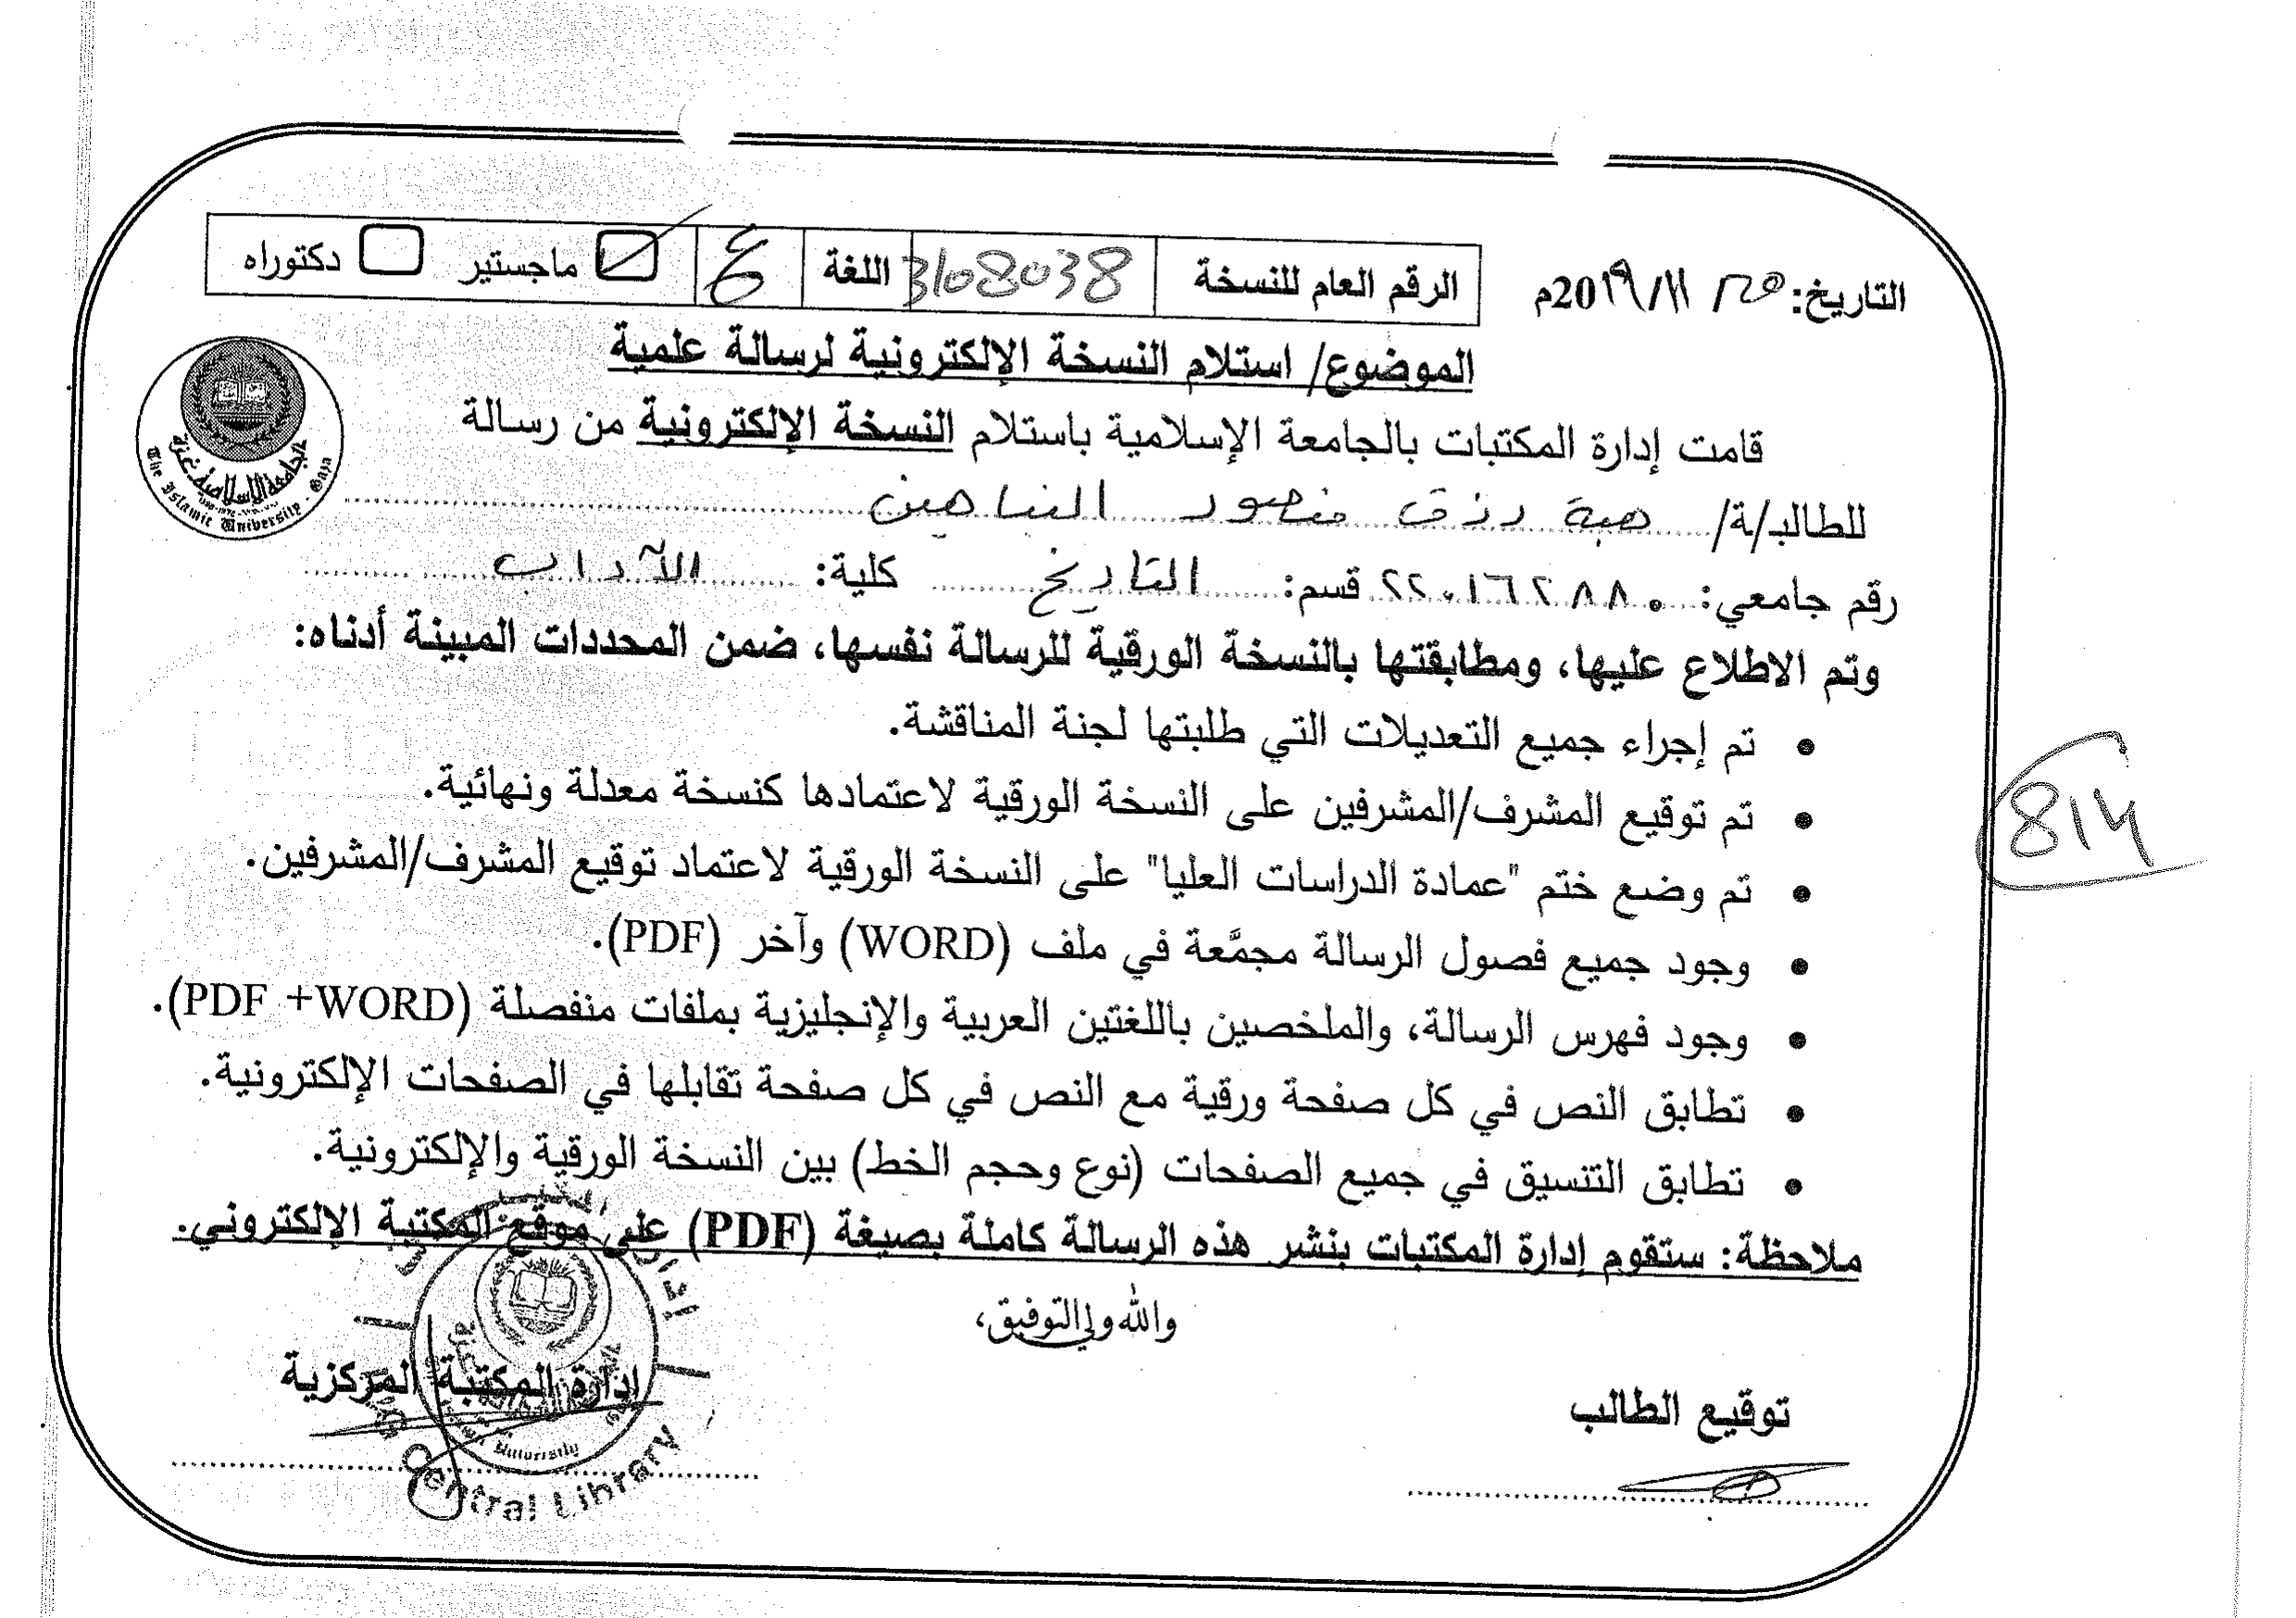 التاريخ: ٢٥ / ١١/ 20١٩م
الرقم العام للنسخة 3108038 اللغة ع ماجستير دكتوراه
الموضوع/ استلام النسخة الإلكترونية لرسالة علمية
قامت إدارة المكتبات بالجامعة الإسلامية باستلام النسخة الإلكترونية من رسالة
للطالب/ة/ هبة رزق منصور النباهين
رقم جامعي: ٢٢٠١٦٢٨٨٠ قسم: التاريخ كلية: الآداب
وتم الاطلاع عليها، ومطابقتها بالنسخة الورقية للرسالة نفسها، ضمن المحددات المبينة أدناه:
• تم إجراء جميع التعديلات التي طلبتها لجنة المناقشة.
• تم توقيع المشرف/المشرفين على النسخة الورقية لاعتمادها كنسخة معدلة ونهائية.
• تم وضع ختم "عمادة الدراسات العليا" على النسخة الورقية لاعتماد توقيع المشرف/المشرفين.
• وجود جميع فصول الرسالة مجمَّعة في ملف (WORD) وآخر (PDF).
• وجود فهرس الرسالة، والملخصين باللغتين العربية والإنجليزية بملفات منفصلة (PDF +WORD).
• تطابق النص في كل صفحة ورقية مع النص في كل صفحة تقابلها في الصفحات الإلكترونية.
• تطابق التنسيق في جميع الصفحات (نوع وحجم الخط) بين النسخة الورقية والإلكترونية.
ملاحظة: ستقوم إدارة المكتبات بنشر هذه الرسالة كاملة بصيغة (PDF) على موقع المكتبة الإلكتروني.
والله ولي التوفيق،
توقيع الطالب
إدارة المكتبة المركزية
الجامعة الإسلامية غزة
The Islamic University - Gaza
Central Library